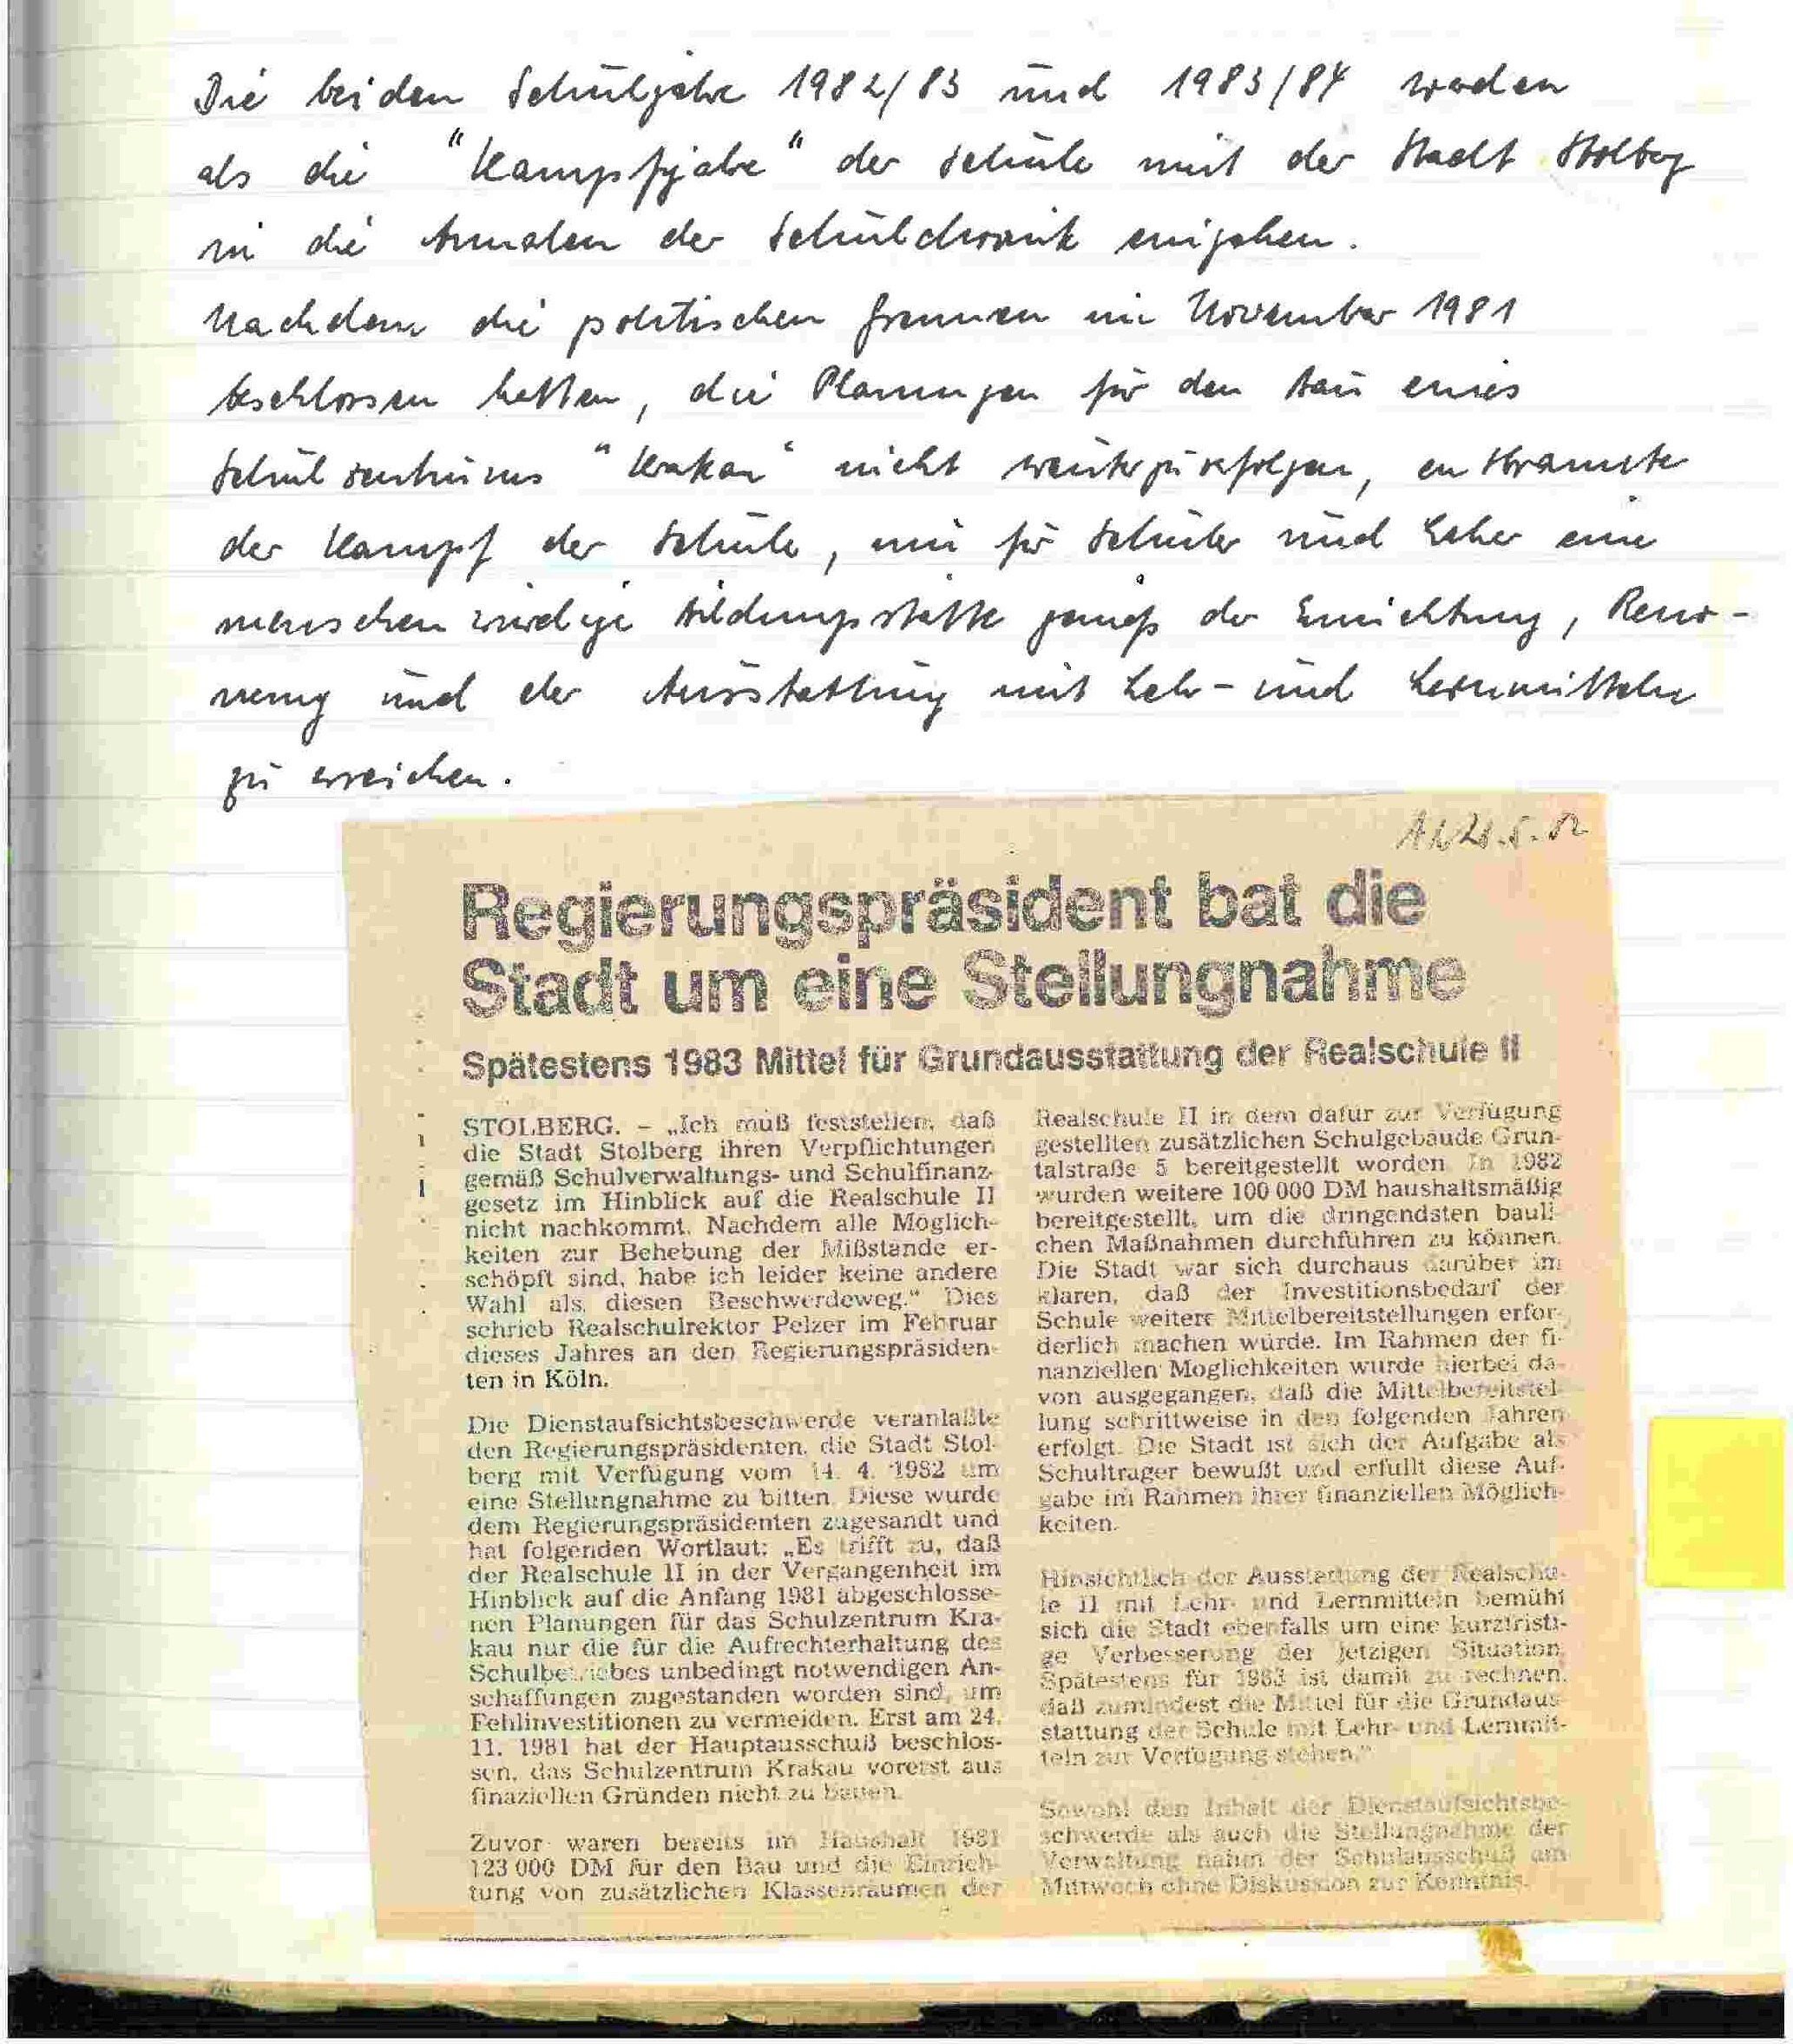 Die beiden Schuljahre 1982/83 und 1983/84 werden
als die "Kampfjahre" der Schule mit der Stadt Stolberg
in die Annalen der Schulchronik eingehen.
Nachdem die politischen Gremien im November 1981
beschlossen hatten, die Planungen für den Bau eines
Schulzentrums "Krakau" nicht weiterzuverfolgen, entbrannte
der Kampf der Schule, nun für Schüler und Lehrer eine
menschenwürdige Bildungsstätte gemäß der Einrichtung, Reno-
vierung und der Ausstattung mit Lehr- und Lernmitteln
zu erreichen.
Regierungspräsident bat die
Stadt um eine Stellungnahme
Spätestens 1983 Mittel für Grundausstattung der Realschule II
STOLBERG. – „Ich muß feststellen, daß
die Stadt Stolberg ihren Verpflichtungen
gemäß Schulverwaltungs- und Schulfinanz-
gesetz im Hinblick auf die Realschule II
nicht nachkommt. Nachdem alle Möglich-
keiten zur Behebung der Mißstände er-
schöpft sind, habe ich leider keine andere
Wahl als diesen Beschwerdeweg.“ Dies
schrieb Realschulrektor Pelzer im Februar
dieses Jahres an den Regierungspräsiden-
ten in Köln.
Die Dienstaufsichtsbeschwerde veranlaßte
den Regierungspräsidenten, die Stadt Stol-
berg mit Verfügung vom 14. 4. 1982 um
eine Stellungnahme zu bitten. Diese wurde
dem Regierungspräsidenten zugesandt und
hat folgenden Wortlaut: „Es trifft zu, daß
der Realschule II in der Vergangenheit im
Hinblick auf die Anfang 1981 abgeschlosse-
nen Planungen für das Schulzentrum Kra-
kau nur die für die Aufrechterhaltung des
Schulbetriebes unbedingt notwendigen An-
schaffungen zugestanden worden sind, um
Fehlinvestitionen zu vermeiden. Erst am 24.
11. 1981 hat der Hauptausschuß beschlos-
sen, das Schulzentrum Krakau vorerst aus
finaziellen Gründen nicht zu bauen.
Zuvor waren bereits im Haushalt 1981
123 000 DM für den Bau und die Einrich-
tung von zusätzlichen Klassenräumen der
Realschule II in dem dafür zur Verfügung
gestellten zusätzlichen Schulgebäude Grün-
talstraße 5 bereitgestellt worden. In 1982
wurden weitere 100 000 DM haushaltsmäßig
bereitgestellt, um die dringendsten bauli-
chen Maßnahmen durchführen zu können.
Die Stadt war sich durchaus darüber im
klaren, daß der Investitionsbedarf der
Schule weitere Mittelbereitstellungen erfor-
derlich machen würde. Im Rahmen der fi-
nanziellen Möglichkeiten wurde hierbei da-
von ausgegangen, daß die Mittelbereitstel-
lung schrittweise in den folgenden Jahren
erfolgt. Die Stadt ist sich der Aufgabe als
Schulträger bewußt und erfüllt diese Auf-
gabe im Rahmen ihrer finanziellen Möglich-
keiten.
Hinsichtlich der Ausstattung der Realschu-
le II mit Lehr- und Lernmitteln bemüht
sich die Stadt ebenfalls um eine kurzfristi-
ge Verbesserung der jetzigen Situation.
Spätestens für 1983 ist damit zu rechnen,
daß zumindest die Mittel für die Grundaus-
stattung der Schule mit Lehr- und Lernmit-
teln zur Verfügung stehen.“
Sowohl den Inhalt der Dienstaufsichtsbe-
schwerde als auch die Stellungnahme der
Verwaltung nahm der Schulausschuß am
Mittwoch ohne Diskussion zur Kenntnis.